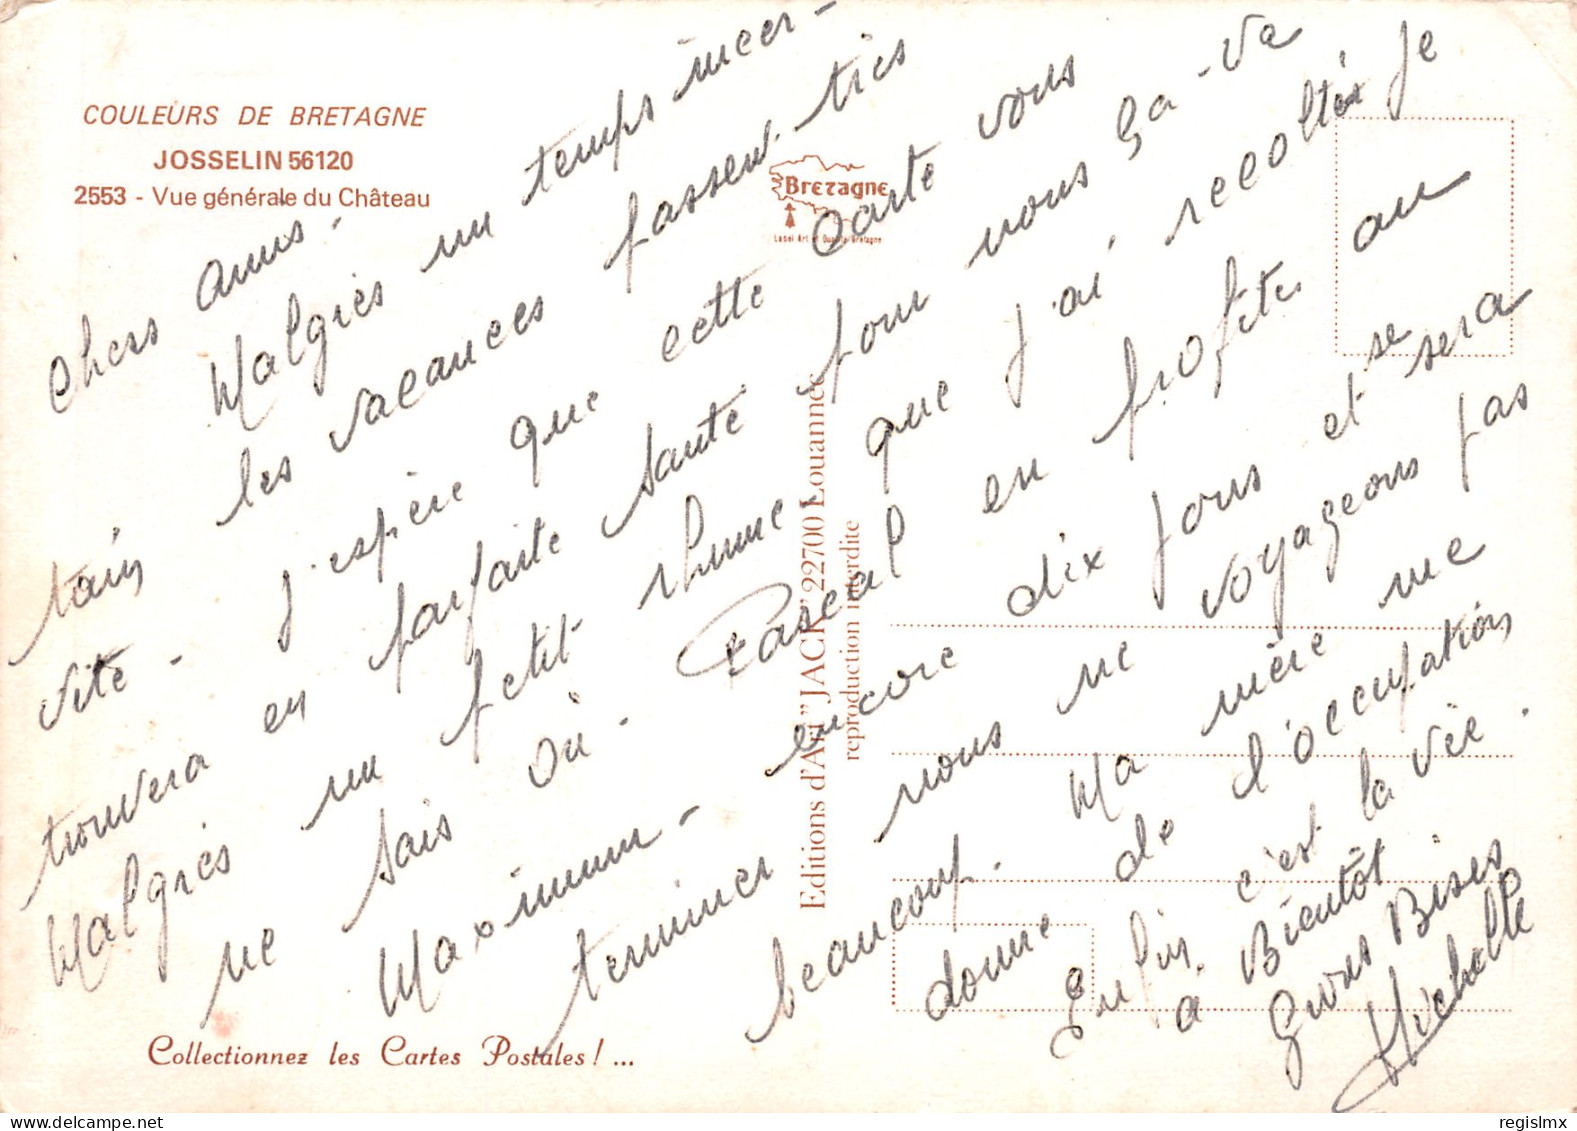 COULEURS DE BRETAGNE
JOSSELIN 56120
2553 - Vue générale du Château
Bretagne
Label Art et Qualité Bretagne
Chers amis -
Malgrès un temps incer-
tain les vacances passent très
vite - J'espère que cette carte vous
trouvera en parfaite santé pour nous ça-va
Malgrès un petit rhume que j'ai recolter je
ne sais où. Pascal en profites au
Maximum - encore dix jours et se sera
terminer nous ne voyageons pas
beaucoup. Ma mère me
donne de l'occupation
Enfin c'est la vie.
à Bientôt.
Gros Bises
Michelle
Editions d'Art "JACK" 22700 Louannec
reproduction interdite
Collectionnez les Cartes Postales ! ...
regislmx